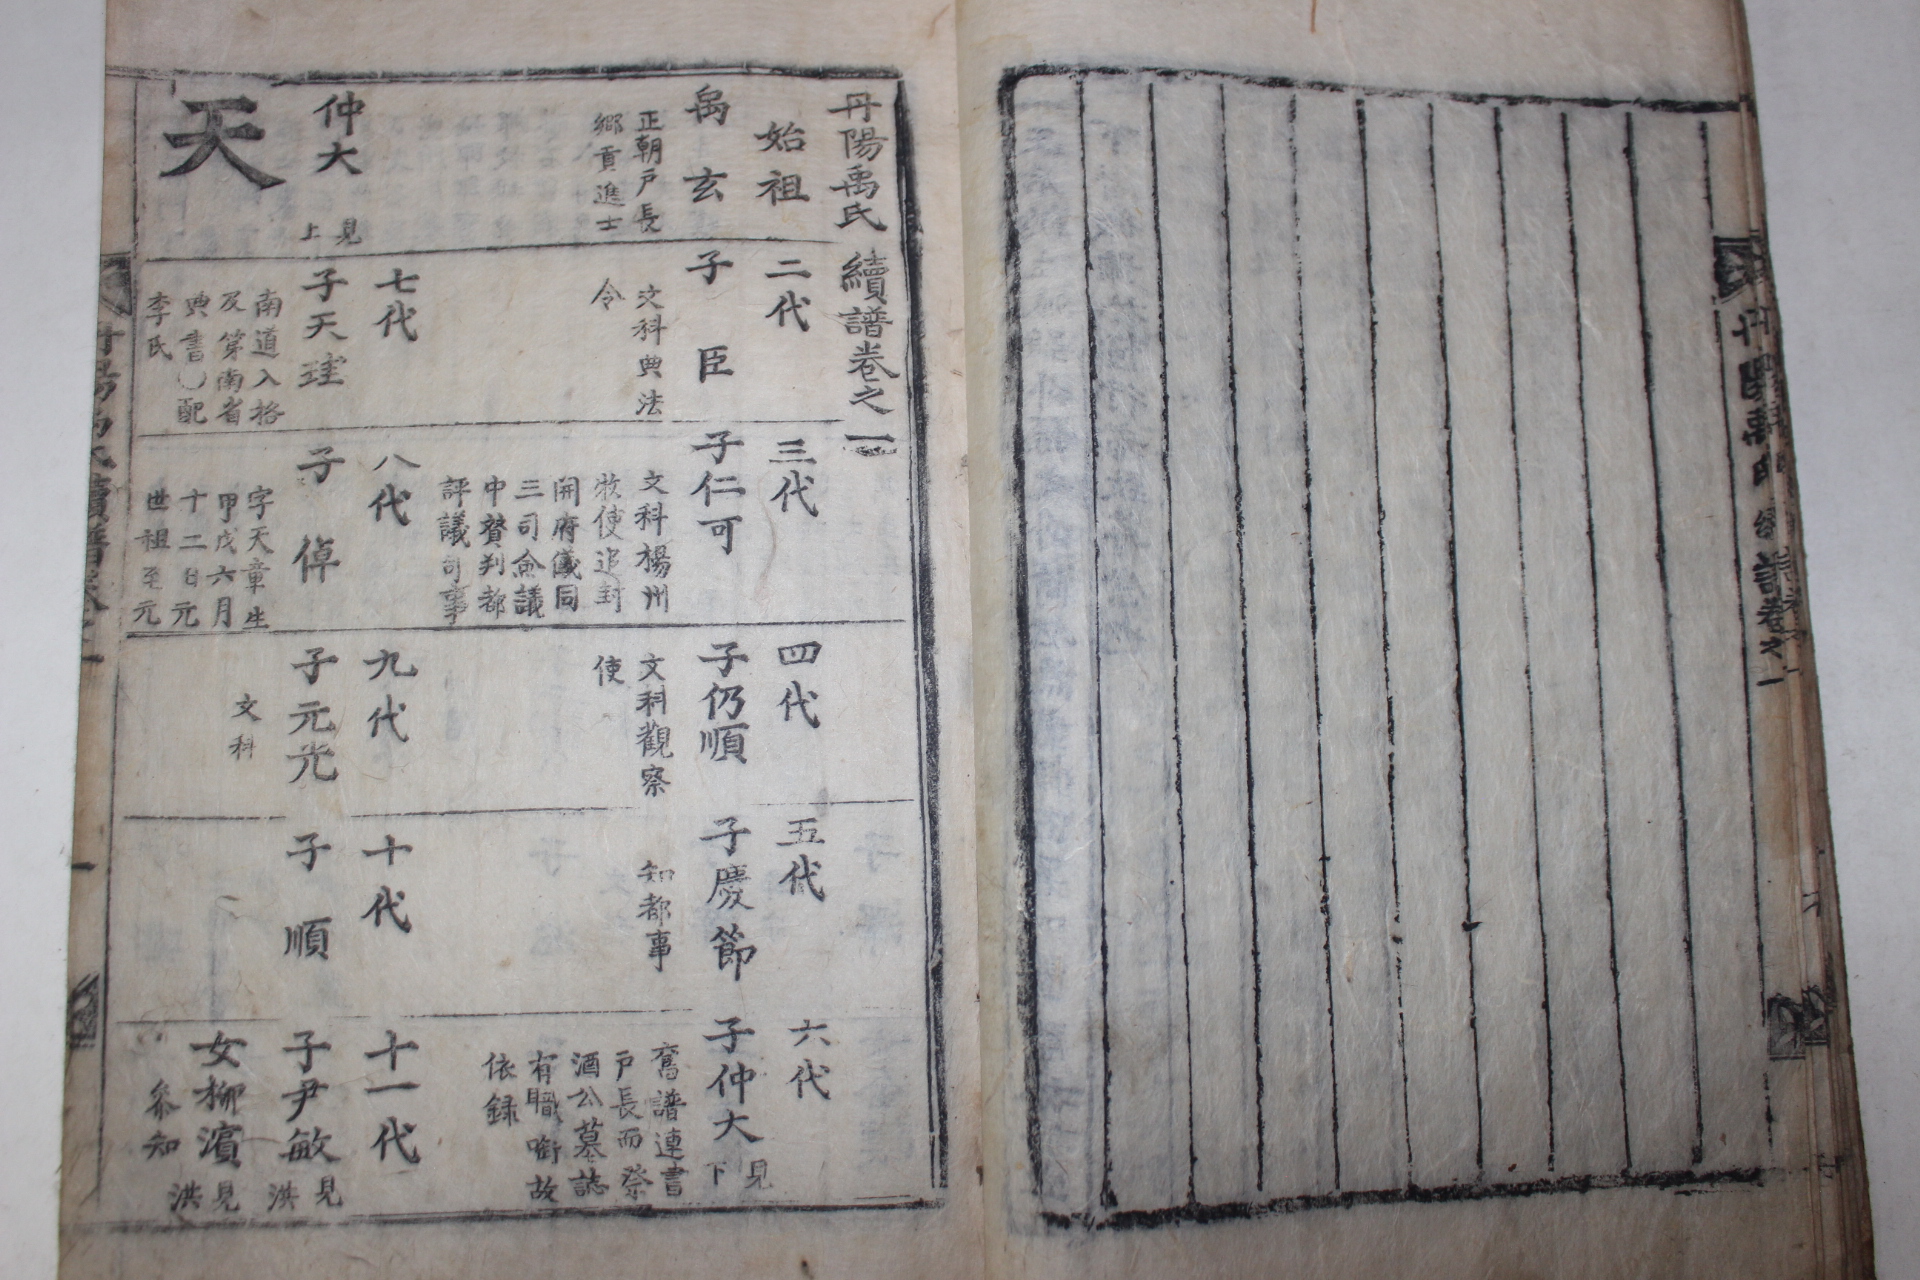 丹陽禹氏續譜卷之一
始祖
禹玄
正朝戶長
鄕貢進士
二代
子臣
文科典法
令
三代
子仁可
文科楊州
牧使追封
開府儀同
三司僉議
中贊判都
評議司事
四代
子仍順
文科觀察
使
五代
子慶節
知都事
六代
子仲大
見
下
舊譜連書
戶長而祭
酒公墓誌
有職啣故
依錄
仲大
見
上
天
七代
子天珪
南道入格
及第南省
典書○配
李氏
八代
子倬
字天章生
甲戌六月
十二日元
世祖至元
九代
子元光
文科
十代
子順
十一代
子尹敏
見
洪
女柳濱
見
洪
參知
丹陽禹氏續譜卷之一
一
丹陽禹氏續譜卷之一